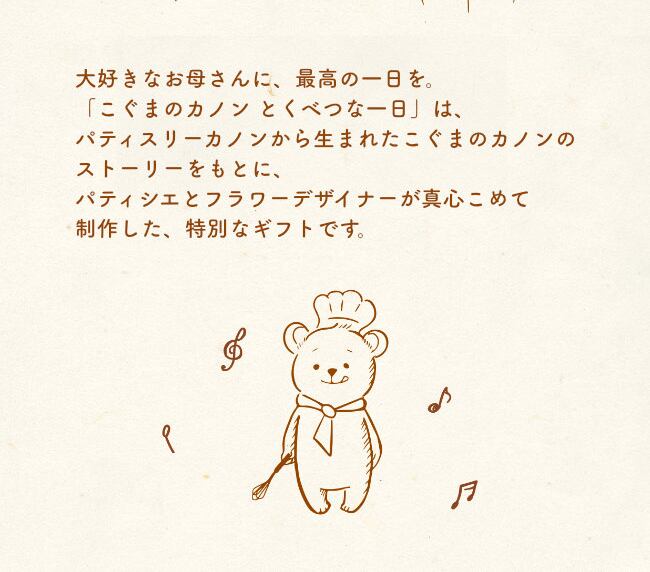 大好きなお母さんに、最高の一日を。
「こぐまのカノン とくべつな一日」は、
パティスリーカノンから生まれたこぐまのカノンの
ストーリーをもとに、
パティシエとフラワーデザイナーが真心こめて
制作した、特別なギフトです。